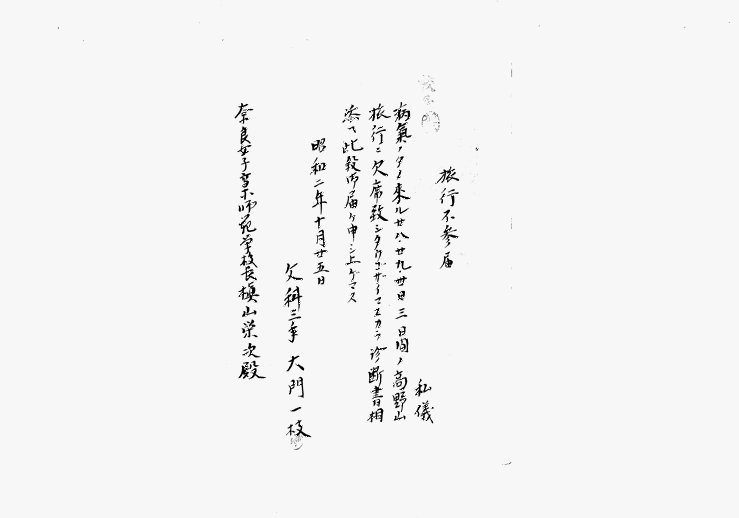 旅行不参届
私儀
病氣ノタメ來ル廿八、廿九、卅日三日間ノ高野山
旅行ニ欠席致シタウゴザイマスカラ診断書相
添ヘ此段御届ケ申シ上ゲマス
昭和二年十月廿五日
文科三年 大門一枝
奈良女子高等師範学校長槙山栄次殿